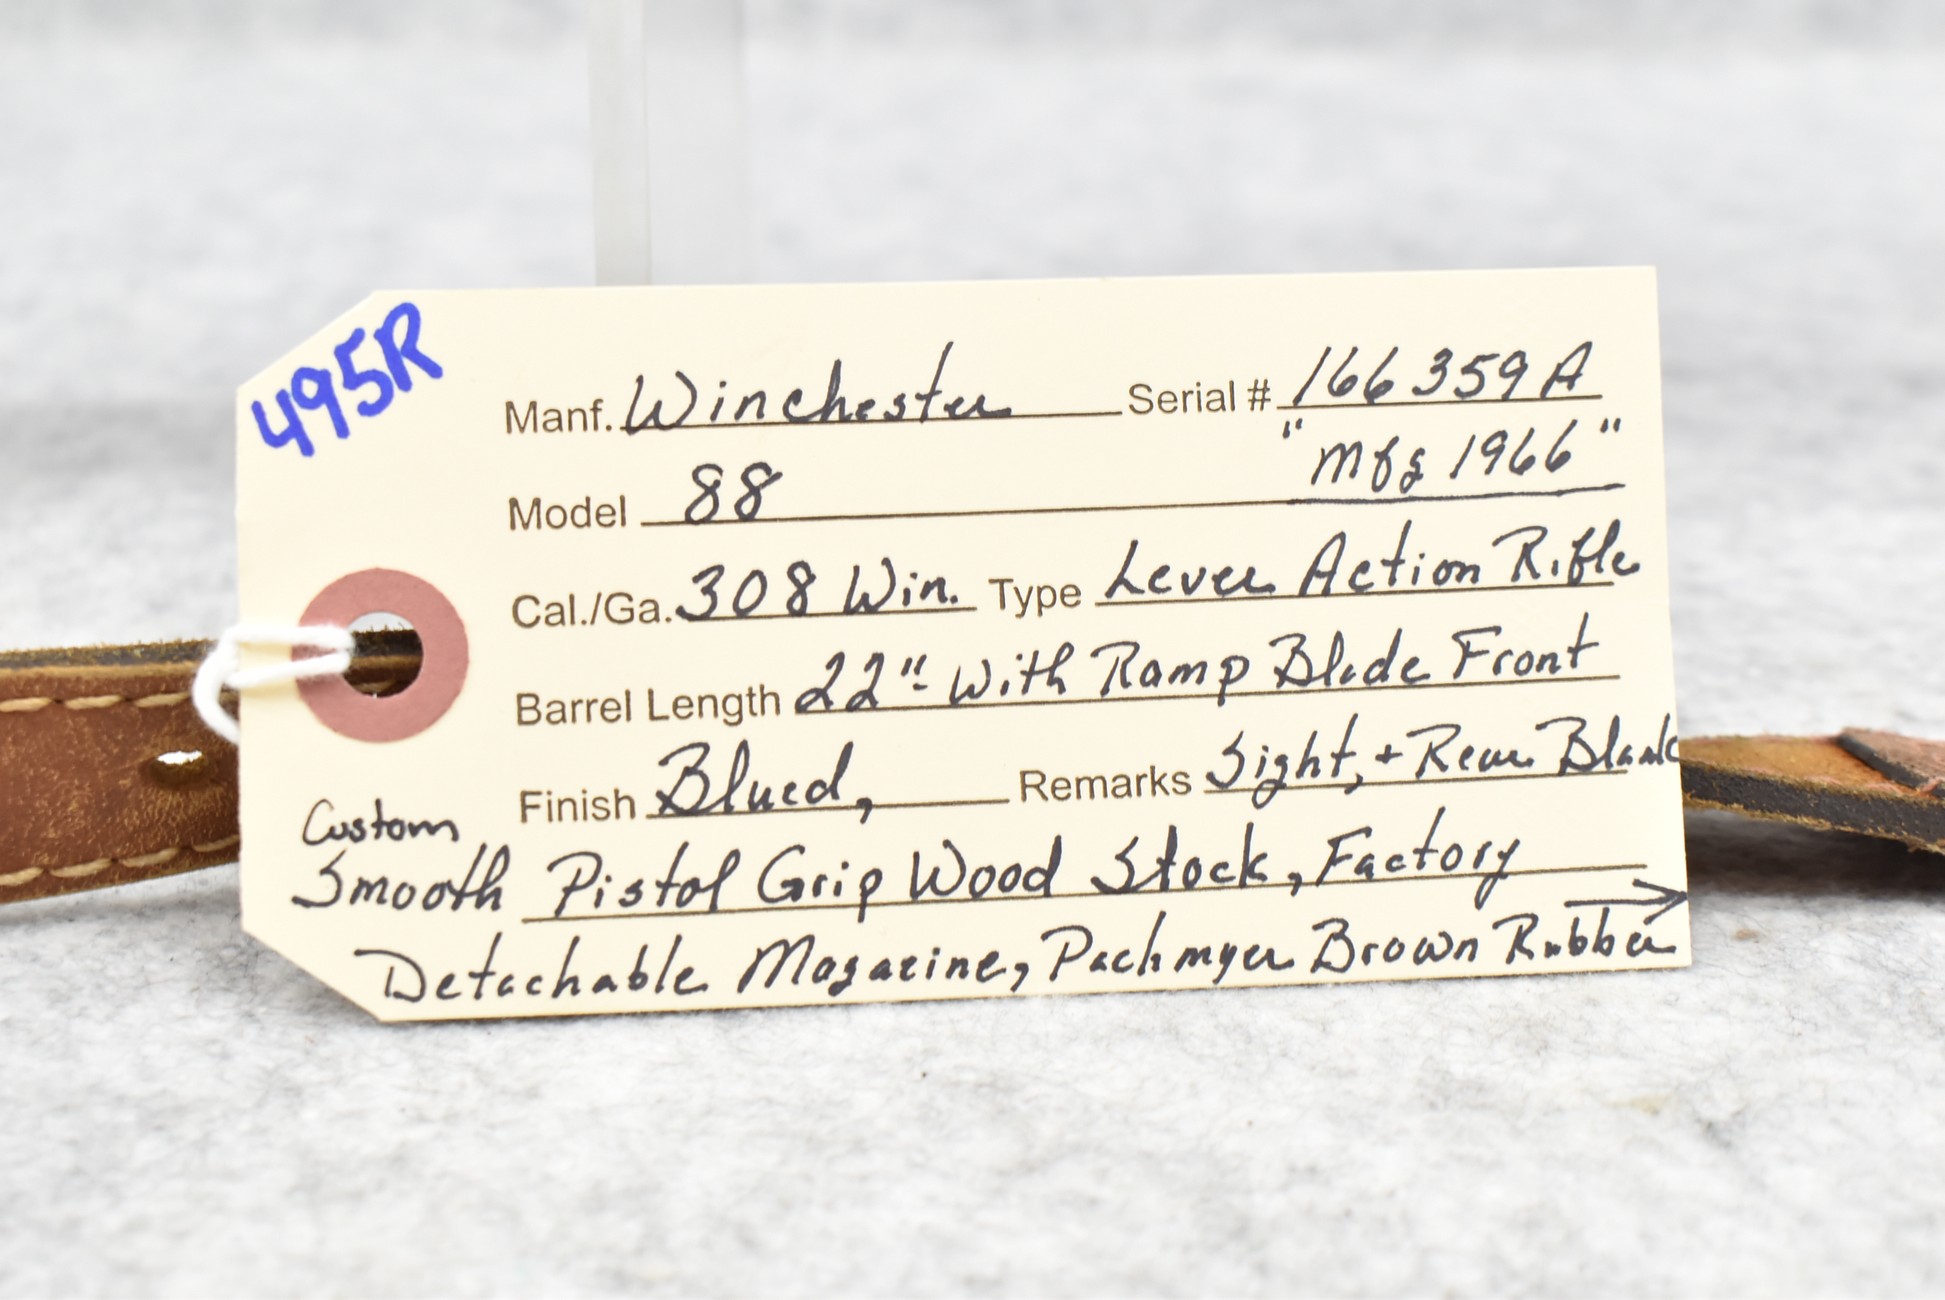 495R
Manf. Winchester Serial # 166359A
Model 88 "Mfg 1966"
Cal./Ga. 308 Win. Type Lever Action Rifle
Barrel Length 22" with Ramp Blade Front
Finish Blued, Remarks Sight, + Rear Blank
Custom
Smooth Pistol Grip Wood Stock, Factory
Detachable Magazine, Pachmyer Brown Rubber →